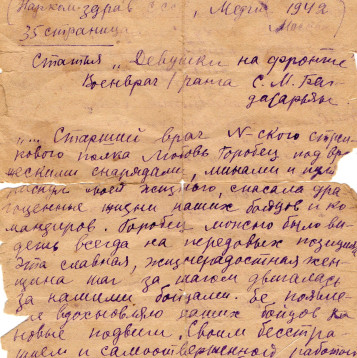 Наркомздрав ССС , Медги 1942
35 страница Мос
Статья „Девушки на фронте
Военврач I ранга С. М. Баг
дасарьян.
„... Старший врач N-ского стрел
кового полка Любовь Горобец под вра
жескими снарядами, минами и пул
своей жизнью, спасала дра
гоценные жизни наших бойцов и ко
мандиров. Горобец можно было ви
деть всегда на передовых позициях
Эта славная, жизнерадостная жен
щина шаг за шагом двигалась
за нашими бойцами. Ее подвиг
и вдохновляло наших бойцов на
новые подвиги. Своим бесстра
шием и самоотверженной работой